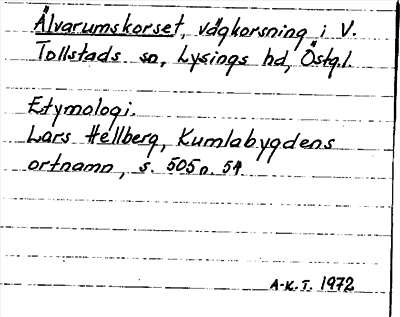 Älvarumskorset, vägkorsning i V.
Tollstads sn, Lysings hd, Östg.l.
Etymologi.
Lars Hellberg, Kumlabygdens
ortnamn, s. 505 n. 54
A-K.T. 1972